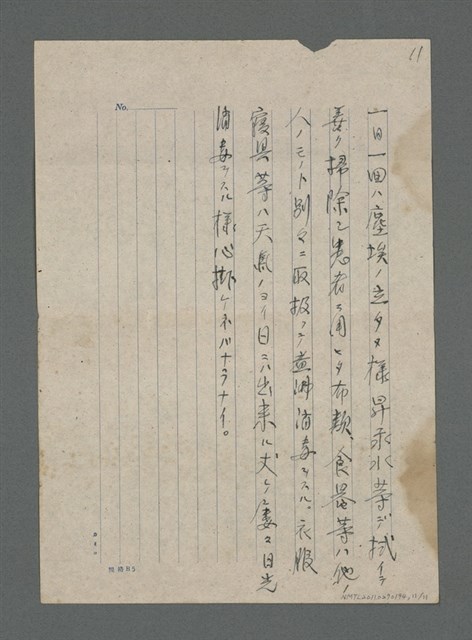 11
No.
一日一回ハ塵埃ノ立タヌ様昇汞水等デ拭イテ
善ク掃除シ患者ニ用ヒタ布類、食器等ハ他ノ
人ノモノト別々ニ取扱ツテ煮沸消毒ヲスル。衣服
寝具等ハ天気ノヨイ日ニハ出来ル丈ケ屡々日光
消毒ヲスル様心掛ケネバナラナイ。
規格B5